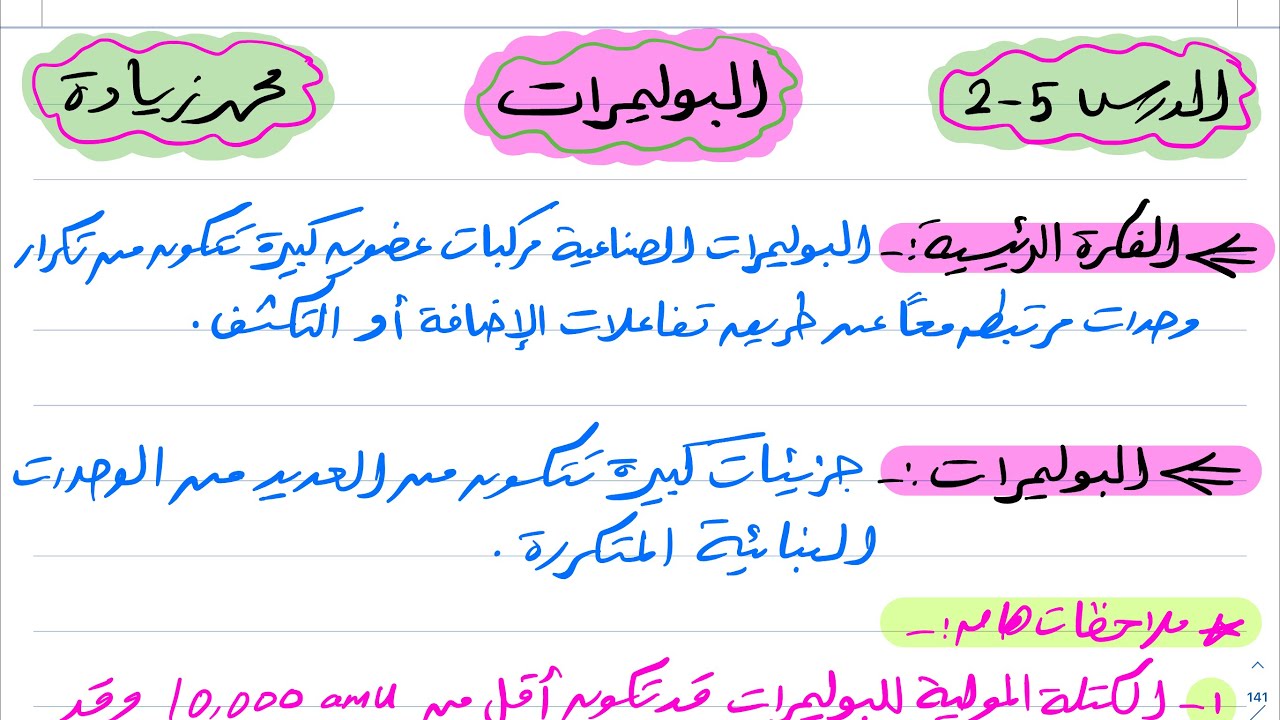 الدرس 5-2
البوليمرات
محمد زيادة
الفكرة الرئيسية :- البوليمرات الصناعية مركبات عضوية كبيرة تتكون من تكرار
وحدات مرتبطه معاً عن طريق تفاعلات الإضافة أو التكثف .
البوليمرات :- جزئيات كبيرة تتكون من العديد من الوحدات
البنائية المتكررة .
* ملاحظات هامه :-
1- الكتلة المولية للبوليمرات قد تكون أقل من 10,000 amu وقد
141